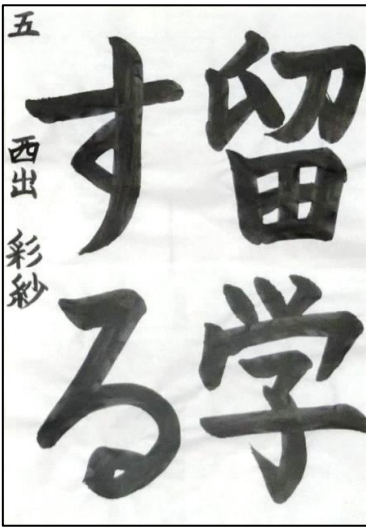 留学
する
五 西出 彩紗